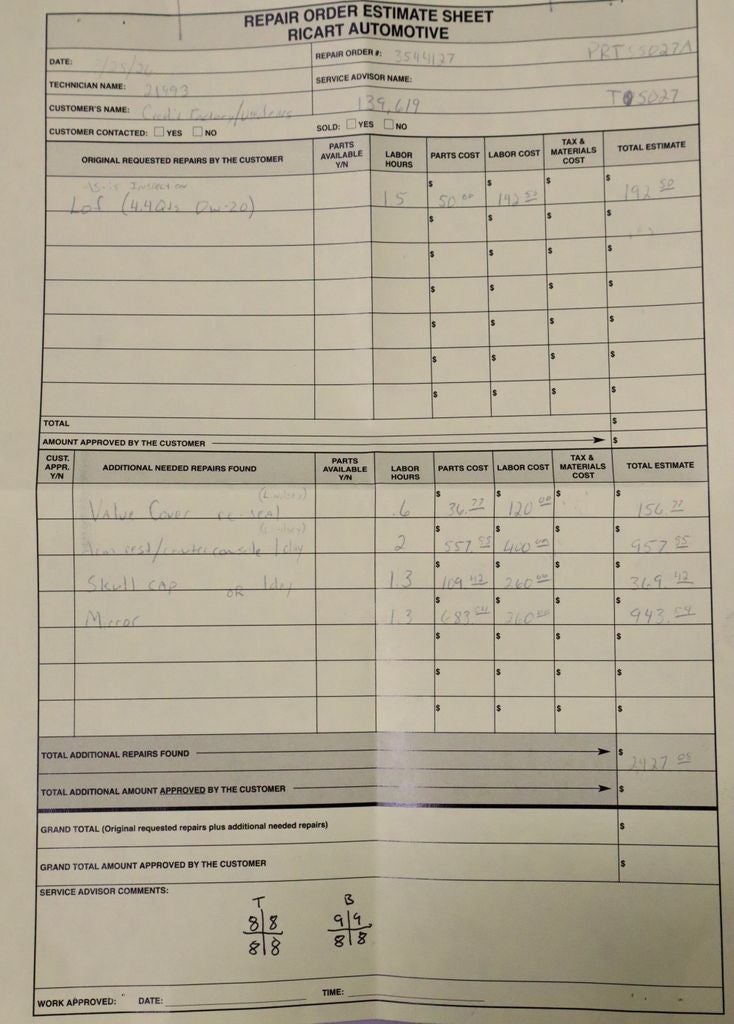 REPAIR ORDER ESTIMATE SHEET
RICART AUTOMOTIVE
DATE: /25/26
REPAIR ORDER #: 3544127
PRTSS027A
TECHNICIAN NAME: 21993
SERVICE ADVISOR NAME:
CUSTOMER'S NAME: Credit Factory/
139,619
TOS027
CUSTOMER CONTACTED: ☐ YES ☐ NO
SOLD: ☐ YES ☐ NO
ORIGINAL REQUESTED REPAIRS BY THE CUSTOMER PARTS AVAILABLE Y/N LABOR HOURS PARTS COST LABOR COST TAX & MATERIALS COST TOTAL ESTIMATE
As-is Inspection
Lof (4.4Qts 0w-20) 1.5 $ 50 00 $ 142 50 $ $ 192 50
$ $ $ $
$ $ $ $
$ $ $ $
$ $ $ $
$ $ $ $
$ $ $ $
TOTAL $
AMOUNT APPROVED BY THE CUSTOMER $
CUST. APPR. Y/N ADDITIONAL NEEDED REPAIRS FOUND PARTS AVAILABLE Y/N LABOR HOURS PARTS COST LABOR COST TAX & MATERIALS COST TOTAL ESTIMATE
Valve Cover re-seal .6 $ 36.77 $ 120 00 $ $ 156.77
Arm rest/center console 1 day 2 $ 557.85 $ 400 00 $ $ 957 85
Skull CAP OR 1 day 1.3 $ 109 42 $ 260 00 $ $ 369.42
Mirror 1.3 $ 683.04 $ 260 00 $ $ 943.04
$ $ $ $
$ $ $ $
$ $ $ $
TOTAL ADDITIONAL REPAIRS FOUND $ 2427 08
TOTAL ADDITIONAL AMOUNT APPROVED BY THE CUSTOMER $
GRAND TOTAL (Original requested repairs plus additional needed repairs) $
GRAND TOTAL AMOUNT APPROVED BY THE CUSTOMER $
SERVICE ADVISOR COMMENTS:
T B
8 8 9 9
8 8 8 8
WORK APPROVED: DATE: TIME: